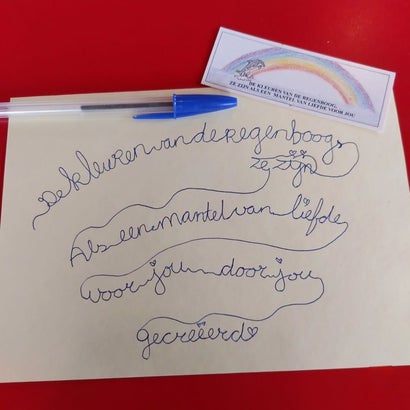 DE KLEUREN VAN DE REGENBOOG,
ZE ZIJN ALS EEN MANTEL VAN LIEFDE VOOR JOU
De kleuren van de regenboogs
ze zijn
Als een mantel van liefde
voor jou door jou
gecreëerd